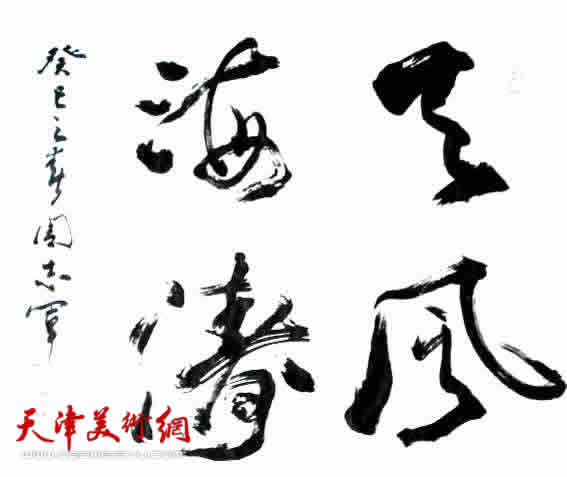 天风
海涛
癸巳之春周志军
天津美術網